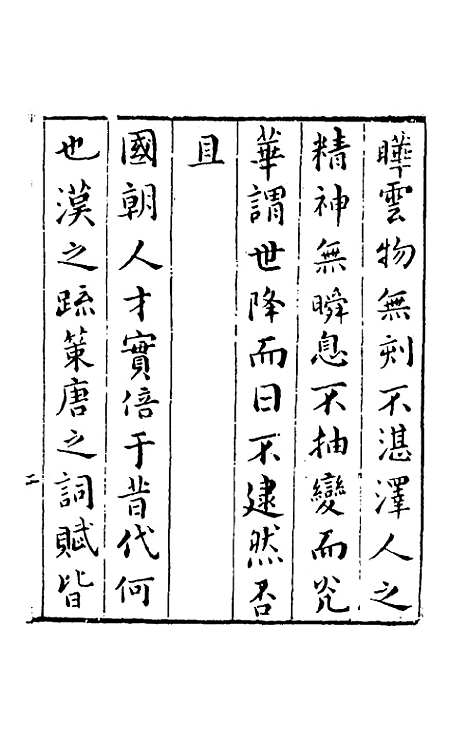 曄雲物無刻不湛澤人之
精神無瞬息不抽變而咒
華謂世降而日不逮然否
且
國朝人才實倍于昔代何
也漢之疏策唐之詞賦皆
二